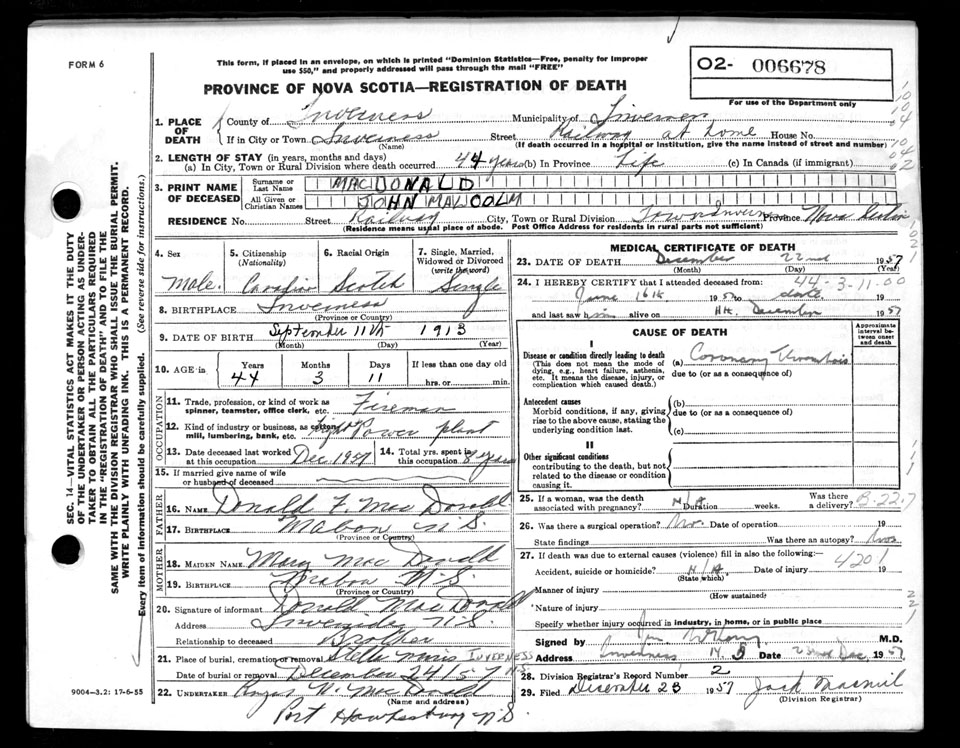 FORM 6
This form, if placed in an envelope, on which is printed "Dominion Statistics—Free, penalty for improper
use $50," and properly addressed will pass through the mail "FREE"
O2- 006678
For use of the Department only
PROVINCE OF NOVA SCOTIA—REGISTRATION OF DEATH
1. PLACE OF DEATH
County of Inverness Municipality of Inverness
If in City or Town Inverness Street Railway at home House No.
(Name) (If death occurred in a hospital or institution, give the name instead of street and number)
2. LENGTH OF STAY (in years, months and days)
(a) In City, Town or Rural Division where death occurred 44 years (b) In Province Life (c) In Canada (if immigrant)
3. PRINT NAME OF DECEASED
Surname or Last Name MACDONALD
All Given or Christian Names JOHN MALCOLM
RESIDENCE No. Street Railway City, Town or Rural Division Town Inverness Province Nova Scotia
(Residence means usual place of abode. Post Office Address for residents in rural parts not sufficient)
4. Sex Male
5. Citizenship (Nationality) Canadian
6. Racial Origin Scotch
7. Single, Married, Widowed or Divorced (write the word) Single
8. BIRTHPLACE Inverness
(Province or Country)
9. DATE OF BIRTH September 11th 1913
(Month) (Day) (Year)
10. AGE in Years 44 Months 3 Days 11 If less than one day old hrs. or min.
OCCUPATION
11. Trade, profession, or kind of work as spinner, teamster, office clerk, etc. Fireman
12. Kind of industry or business, as cotton mill, lumbering, bank, etc. Power plant
13. Date deceased last worked at this occupation Dec 1957
14. Total yrs. spent in this occupation 8 years
15. If married give name of wife or husband of deceased
FATHER
16. NAME Donald F. Mac Donald
17. BIRTHPLACE Mabou N.S.
(Province or Country)
MOTHER
18. MAIDEN NAME Mary Mac Donald
19. BIRTHPLACE Mabou N.S.
(Province or Country)
20. Signature of informant Donald MacDonald
Address N.S.
Relationship to deceased Brother
21. Place of burial, cremation or removal Stella Maris INVERNESS N.S.
Date of burial or removal December 24/57
22. UNDERTAKER Mac Donald
(Name and address)
Port Hawkesbury N.S.
9004-3.2: 17-6-55
MEDICAL CERTIFICATE OF DEATH
23. DATE OF DEATH December 22nd 1957
(Month) (Day) (Year)
44-3-11-00
24. I HEREBY CERTIFY that I attended deceased from
June 16th 1957 to date 19
and last saw him alive on December 1957
CAUSE OF DEATH
Approximate interval between onset and death
I
Disease or condition directly leading to death
(This does not mean the mode of dying, e.g., heart failure, asthenia, etc. It means the disease, injury, or complication which caused death.)
(a) Coronary Thrombosis
due to (or as a consequence of)
Antecedent causes
Morbid conditions, if any, giving rise to the above cause, stating the underlying condition last.
(b)
due to (or as a consequence of)
(c)
II
Other significant conditions
contributing to the death, but not related to the disease or condition causing it.
25. If a woman, was the death associated with pregnancy? N/A Duration weeks. Was there a delivery?
B-22.7
26. Was there surgical operation? No Date of operation 19
State findings Was there an autopsy? No
27. If death was due to external causes (violence) fill in also the following:—
4201
Accident, suicide or homicide? N/A Date of injury 19
(State which)
Manner of injury
(How sustained)
Nature of injury
Specify whether injury occurred in industry, in home, or in public place
Signed by M.D.
Address Inverness, N.S. Date 23rd Dec 1957
28. Division Registrar's Record Number 2
29. Filed December 23 1957
(Division Registrar)
SEC. 14—VITAL STATISTICS ACT MAKES IT THE DUTY
OF THE UNDERTAKER OR PERSON ACTING AS UNDER-
TAKER TO OBTAIN ALL THE PARTICULARS REQUIRED
IN THE "REGISTRATION OF DEATH" AND TO FILE THE
SAME WITH THE DIVISION REGISTRAR WHO SHALL ISSUE THE BURIAL PERMIT.
WRITE PLAINLY WITH UNFADING INK. THIS IS A PERMANENT RECORD.
Every item of information should be carefully supplied. (See reverse side for instructions.)